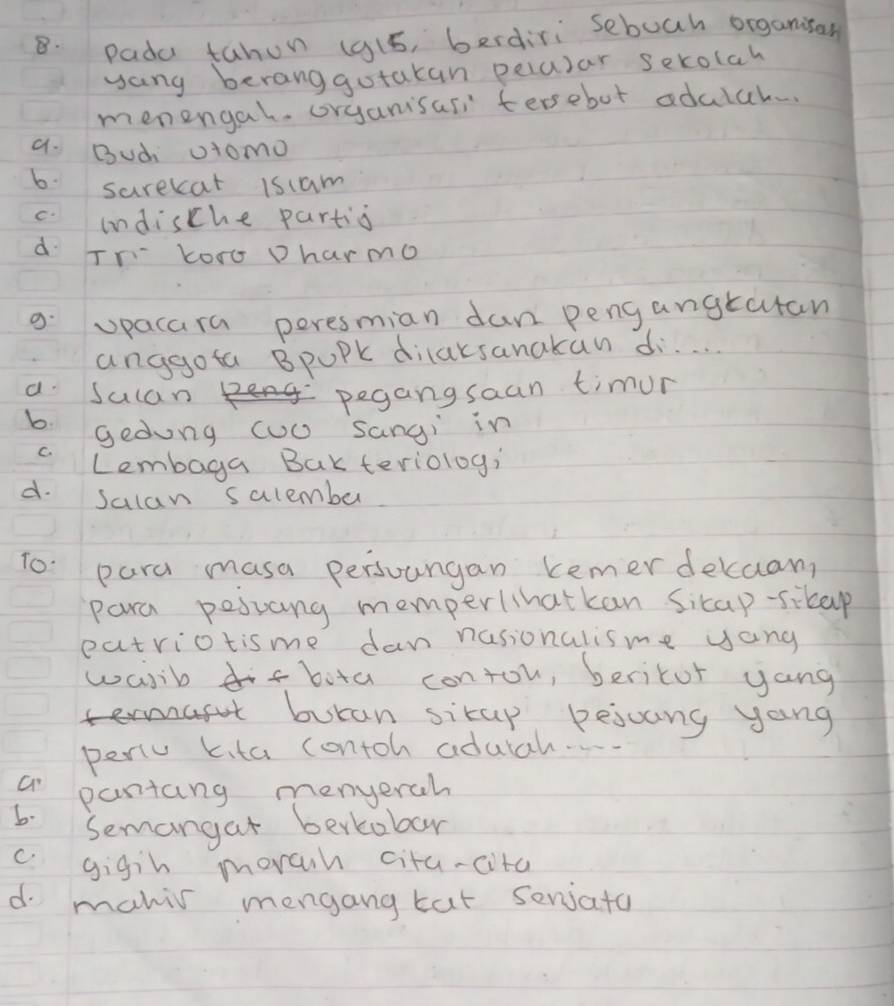 8. Pada tahun 1915, berdiri sebuah organisasi
yang beranggotakan pelajar sekolah
menengah. organisasi tersebut adalah...
a. Budi Utomo
b. sarekat islam
c. indische partij
d. Tri koro Dharmo
9. Upacara peresmian dan pengangkatan
anggota BPUPK dilaksanakan di....
a. Jalan peng pegangsaan timur
b. gedung cuo sangi in
c. Lembaga Bakteriologi
d. Jalan salemba
10. para masa perjuangan kemerdekaan,
para pejuang memperlihatkan sikap-sikap
patriotisme dan nasionalisme yang
wajib di t kita contoh, berikut yang
termasuk bukan sikap pejuang yang
perlu kita contoh adalah.....
a. pantang menyerah
b. Semangat berkobar
c. gigih meraih cita-cita
d. mahir mengangkat senjata